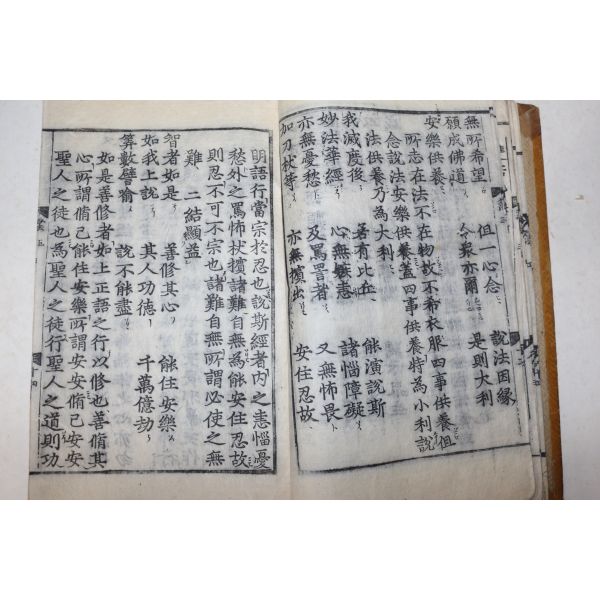 無所希望 但一心念 說法因緣
願成佛道 令衆亦爾 是則大利
安樂供養
所志在法不在物故不希衣服四事供養但
念說法安樂供養盖四事供養特為小利說
法供養乃為大利
我滅度後 若有比丘 能演說斯
妙法華經 心無嫉恚 諸惱障礙
亦無憂愁 及罵詈者 又無怖畏
加刀杖等 亦無擯出 安住忍故
明語行當宗於忍也說斯經者內之恚惱憂
愁外之罵怖杖擯諸難自無為能安住忍故
則忍不可不宗也諸難自無所謂必使之無
難 二結顯益
智者如是 善修其心 能住安樂
如我上說 其人功德 千萬億劫
算數譬喻 說不能盡
如是善修者如上正語之行以修也善脩其
心所謂脩己能住安樂所謂安安脩己安安
聖人之徒也為聖人之徒行聖人之道則功
十四